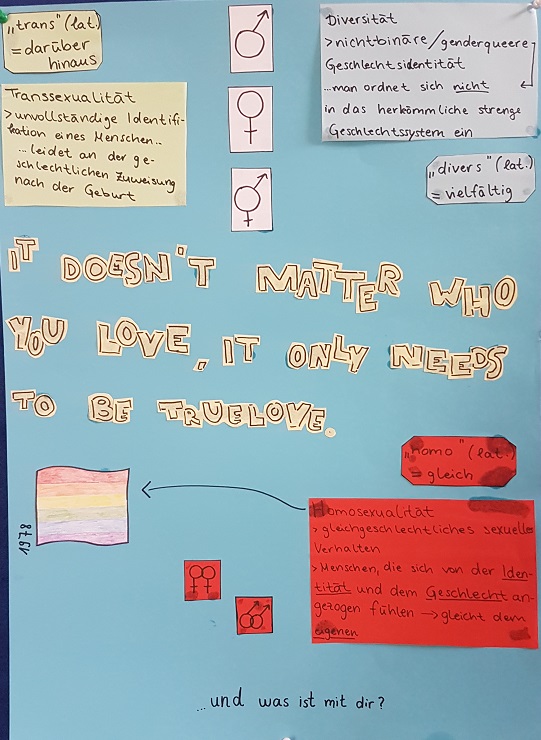 „trans" (lat.)
= darüber
hinaus
Transsexualität
> unvollständige Identifi-
kation eines Menschen..
...leidet an der ge-
schlechtlichen Zuweisung
nach der Geburt
Diversität
> nichtbinäre/genderqueere
Geschlechtsidentität
...man ordnet sich nicht
in das herkömmliche strenge
Geschlechtssystem ein
„divers" (lat.)
= vielfältig
IT DOESN'T MATTER WHO
YOU LOVE, IT ONLY NEEDS
TO BE TRUELOVE.
„homo" (lat.)
= gleich
1978
Homosexualität
> gleichgeschlechtliches sexuelles
Verhalten
> Menschen, die sich von der Iden-
tität und dem Geschlecht an-
gezogen fühlen → gleicht dem
eigenen
...und was ist mit dir?